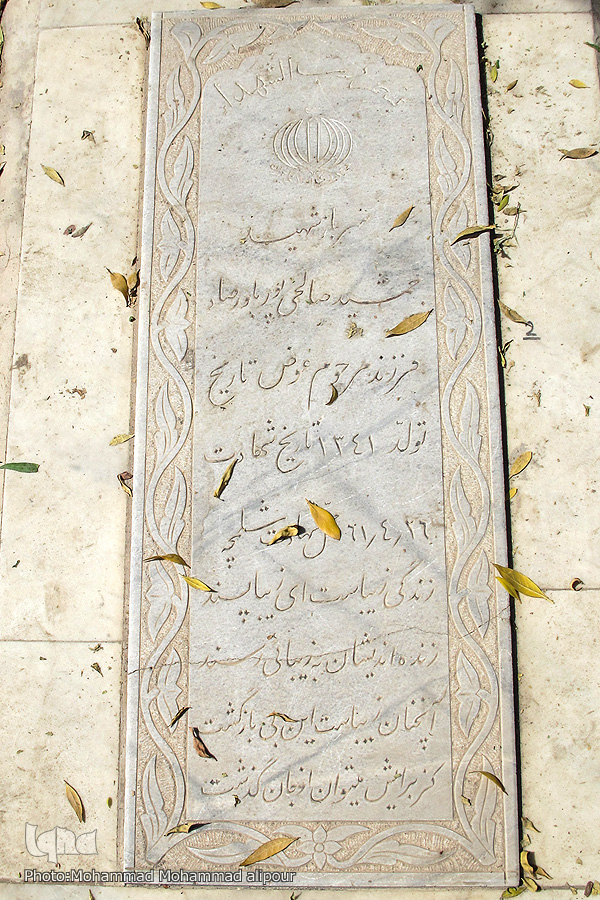 سرباز شهید
جمشید صالحی پور یاورصاد
فرزند مرحوم عوض تاریخ
تولّد ۱۳۴۱ تاریخ شهادت
۶۱٫۴٫۲۶ شلمچه
زندگی زیباست ای زیبا پسند
زنده اندیشان به زیبائی رسند
آنچنان زیباست این بی بازگشت
کز برایش میتوان از جان گذشت
Iqna
Photo:Mohammad Mohammad alipour